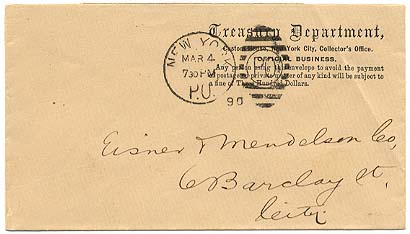 Treasury Department,
Custom House, New York City, Collector's Office.
OFFICIAL BUSINESS.
Any person using this envelope to avoid the payment
of postage on private matter of any kind will be subject to
a fine of Three Hundred Dollars.
NEW YORK
MAR 4
730 PM
P.O.
90
Eisner & Mendelson Co,
6 Barclay St,
City